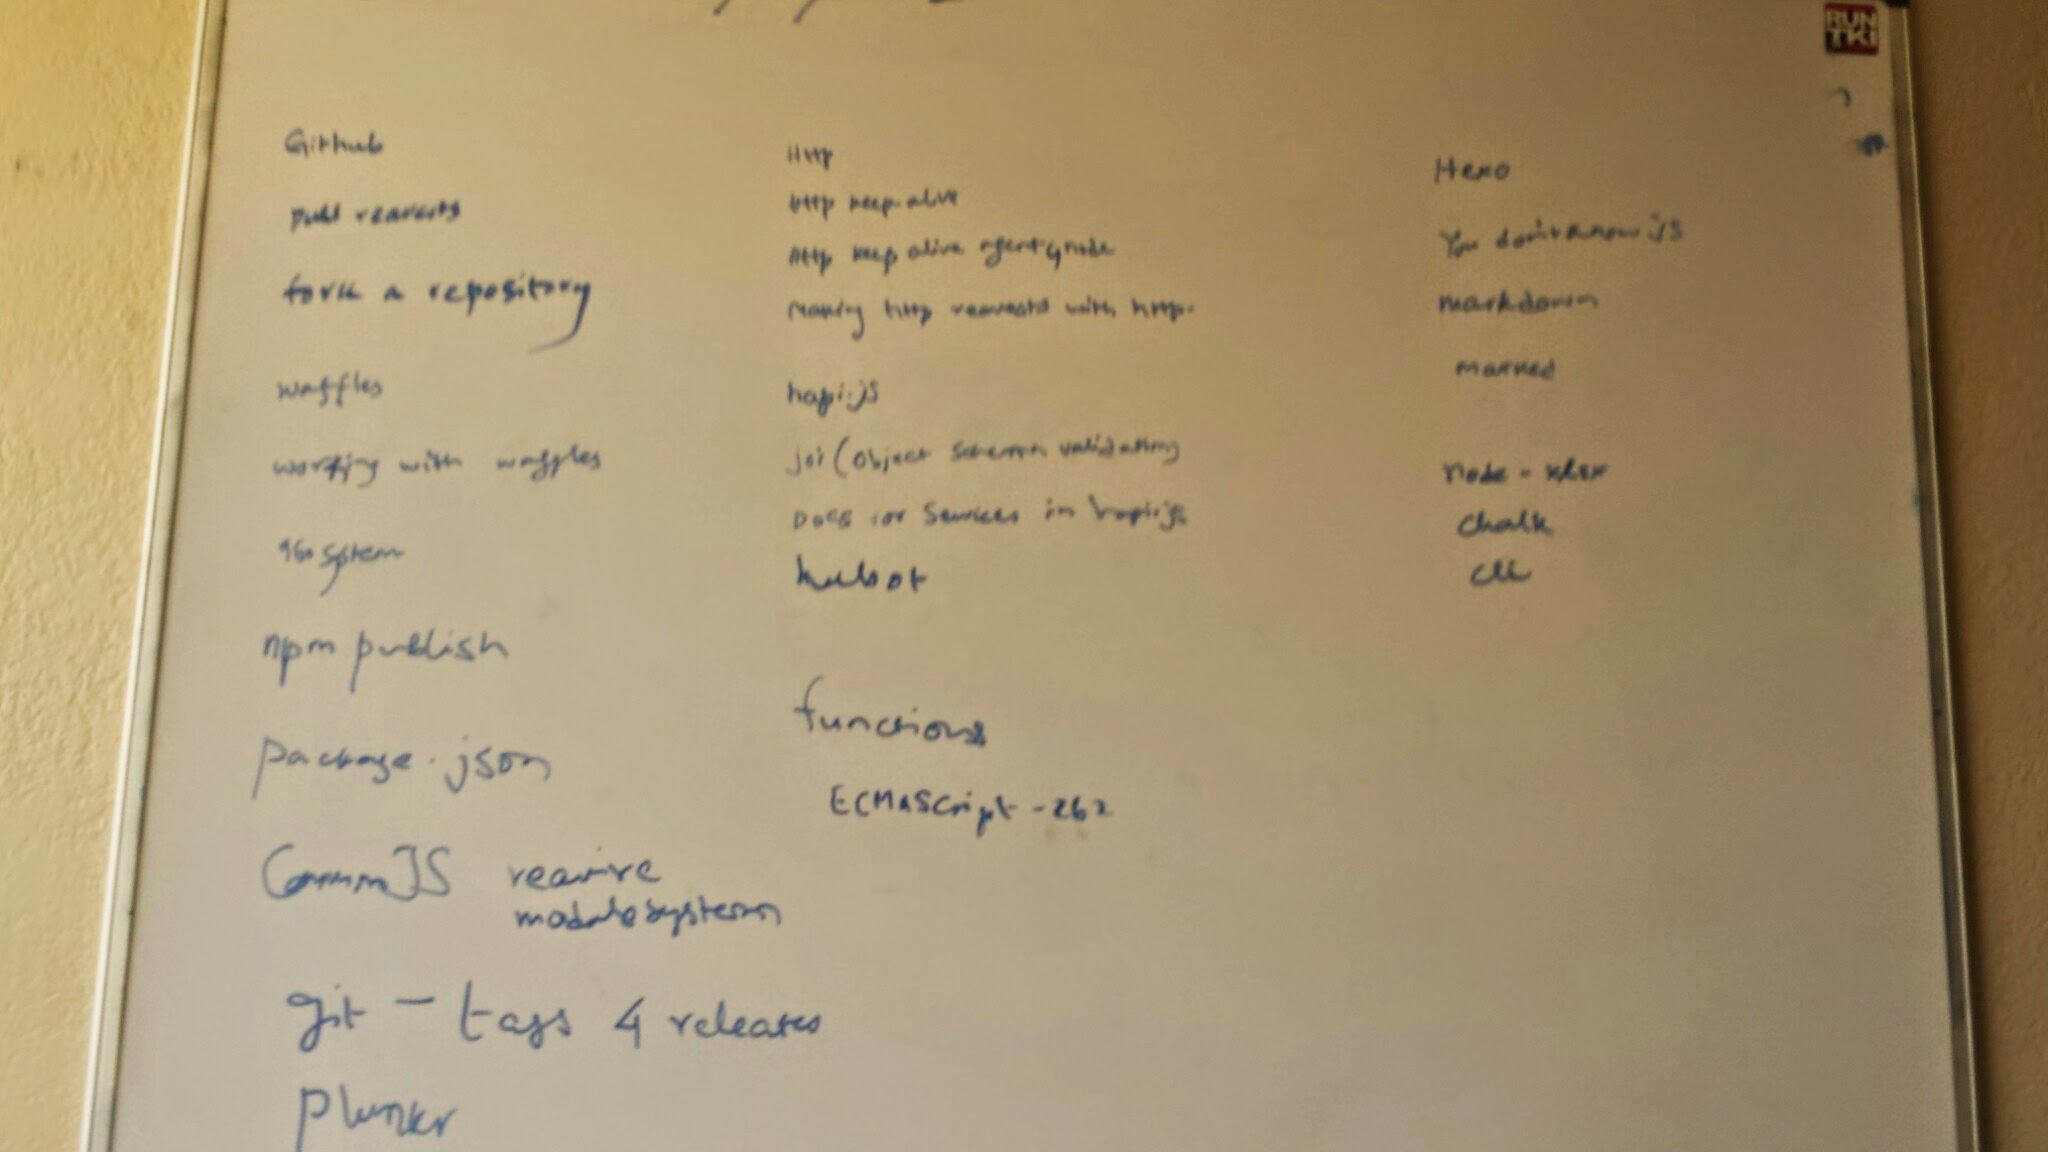 Github
pull requests
fork a repository
waffles
working with waffles
system
npm publish
package.json
CommonJS require
modulesystem
git - tags 4 releases
plunkr
Http
http keep-alive
Http keep alive agent 4 node
Making http requests with http.
hapi.js
joi (object schema validation)
Docs for Services in hapi.js
hubot
functions
ECMAScript -262
Hexo
You don't know js
markdown
marked
node - xlsx
chalk
cli
RUN
TKI